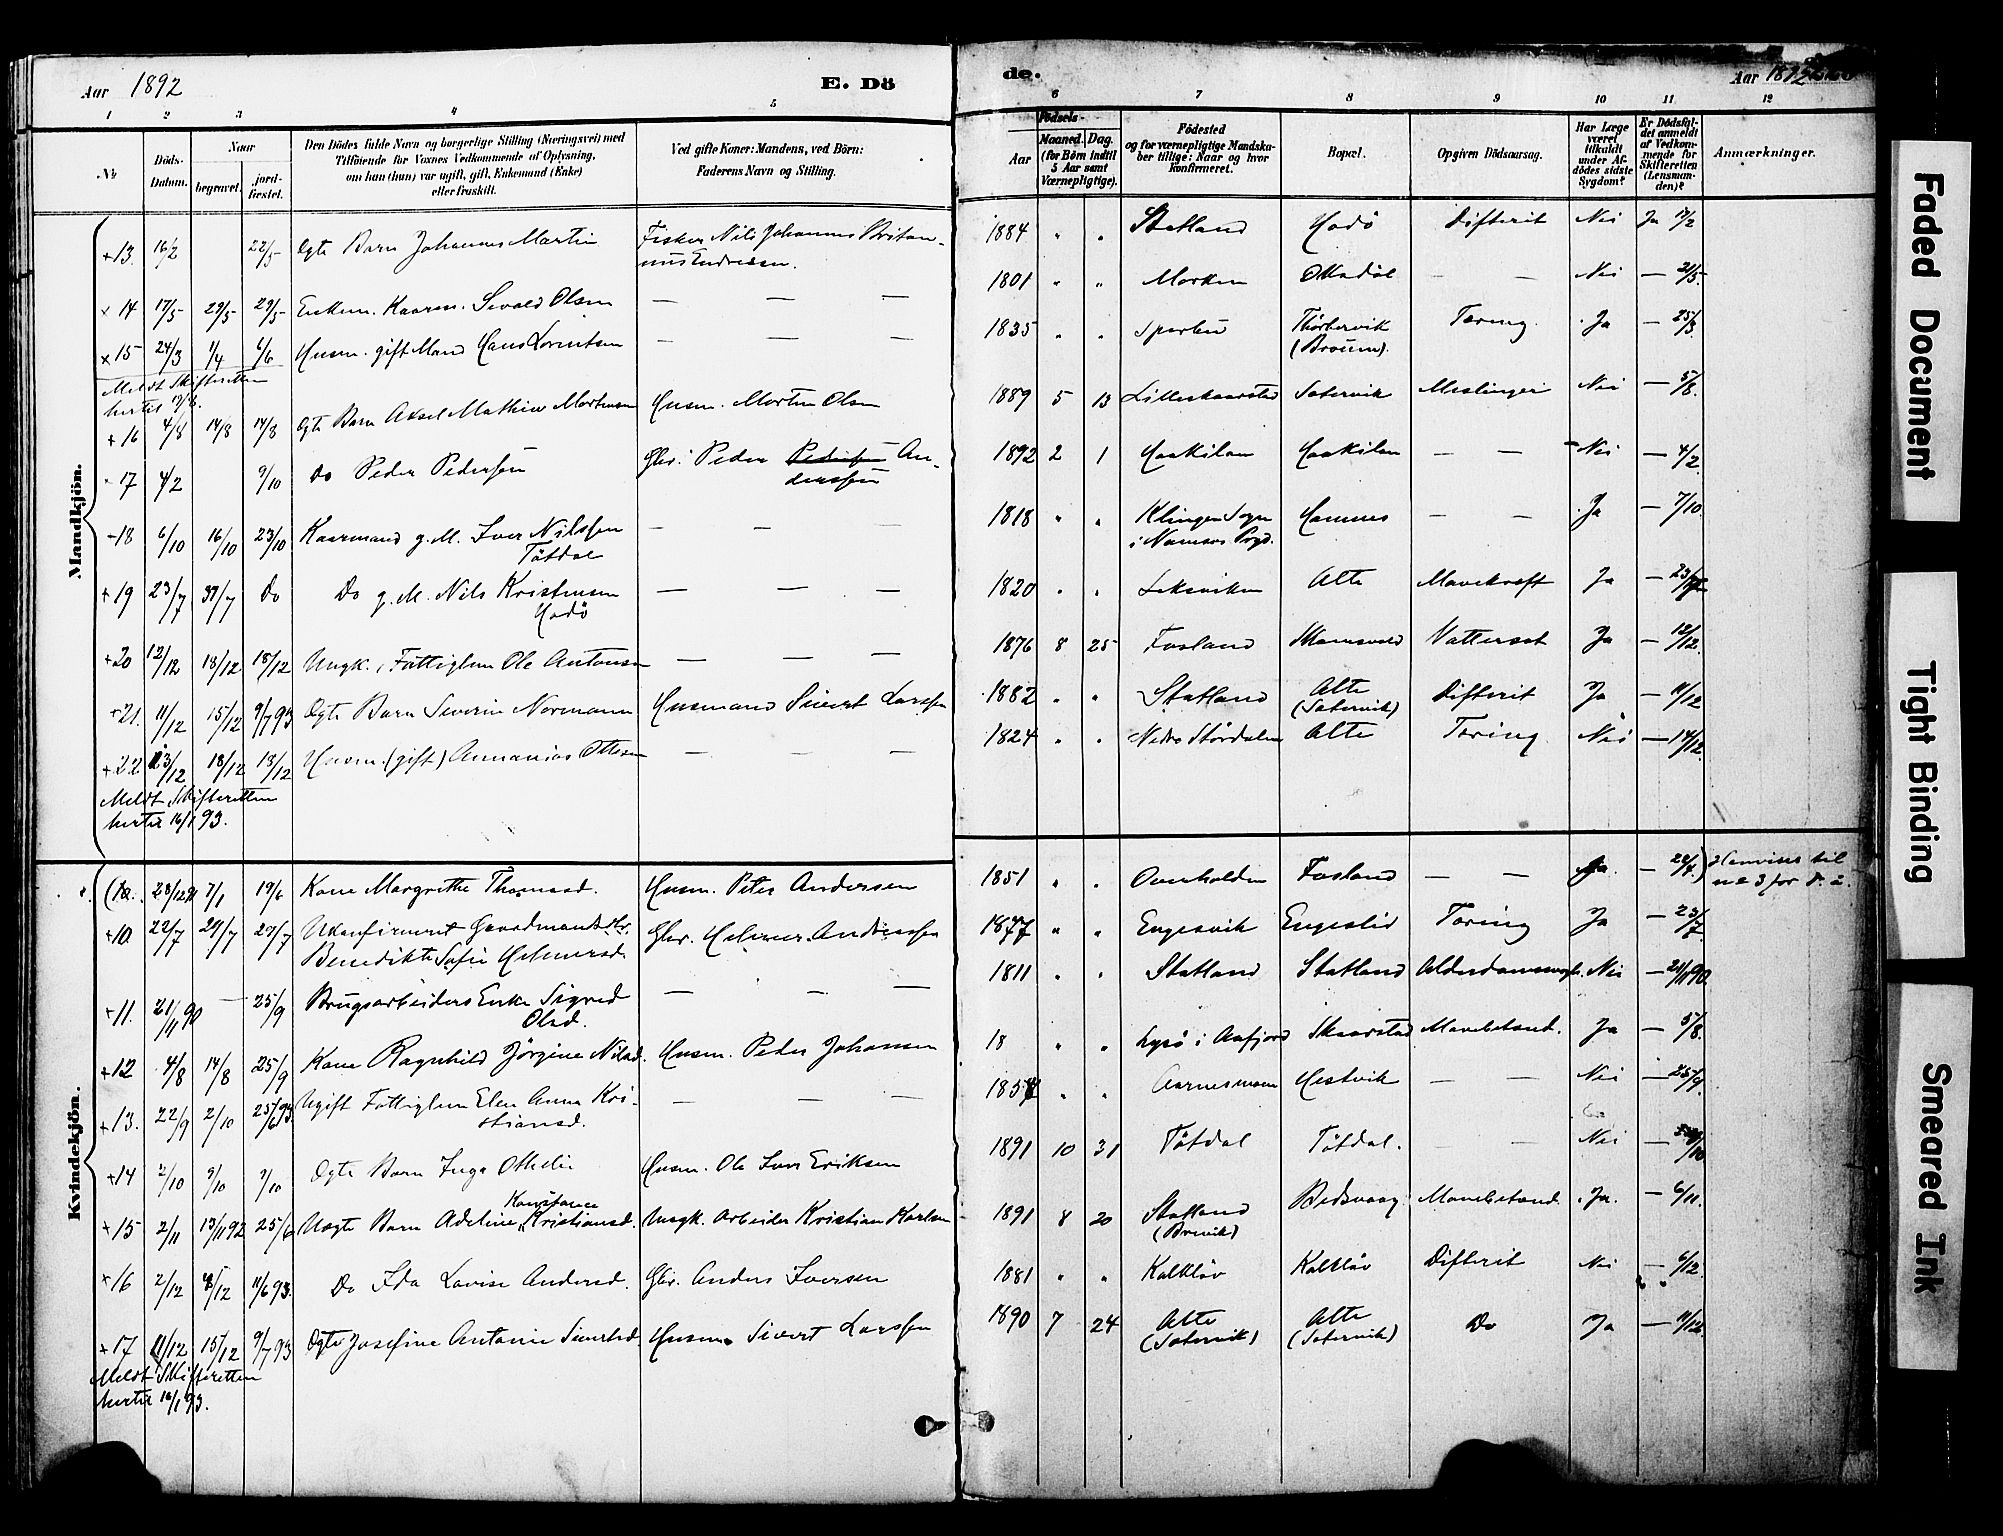 Aar 1892
E. Dö
1 2 3 4 5
No
Döds-
Datum.
Naar
begravet.
jord-
fæstet.
Den Dödes fulde Navn og borgerlige Stilling (Næringsvei) med
Tilföiende for Voxnes Vedkommende af Oplysning,
om han (hun) var ugift, gift, Enkemand (Enke)
eller fraskilt.
Ved gifte Koner: Mandens, ved Börn:
Faderens Navn og Stilling.
Mandkjön.
+13. 16/2 22/5 Ægte Barn Johannes Martin Fisker Nils Johannes Britan-
nius Endresen.
+14 17/5 29/5 29/5 Enkem. Kaarm. Sivald Olsen — — —
+15 24/3 1/4 6/6 Husm. gift Mand Hans Lorntsen — — —
Meldt Skifteretten
hertil
+16 4/8 14/8 14/8 Ægte Barn Aksel Mathias Mortensen Husm. Morten Olsen
17 4/2 9/10 Do Peder Pedersen Gbr. Peder Pedersen An-
derssen
18 6/10 16/10 23/10 Kaarmand g. M. Iver Nilssen — — —
Tötdal
+19 23/7 31/7 Do Do g. M. Nils Kristensen — — —
Hodö
+20 12/12 18/12 18/12 Ungk., Fattiglem Ole Antonsen — — —
+21. 11/12 15/12 9/7 93 Ægte Barn Severin Normann Husmand Sivert Larssen
+22 13/12 18/12 13/12 Husm. (gift) Annanias Ottesen — — —
Meldt Skifteretten
hertil 16/1 93.
Kvindekjön.
23/12 91 7/1 19/6 Kone Margrethe Thomasd. Husm. Peter Andersen
+10 22/7 29/7 29/7 Ukonfirmeret Gaardmandsdtr. Gbr. Helmer Anderssen
Benedikte Sofie Helmersd.
+11. 21/11 90 — 25/9 Brugsarbeiders Enke Sigrid — — —
Olsd.
+12 4/8 14/8 25/9 Kone Ragnhild Jörgine Nilsd. Husm. Peder Johansen
+13. 22/9 2/10 25/6 93. Ugift Fattiglem Elen Anna Kri- — — —
stiansd.
+14 2/10 9/10 9/10 Ægte Barn Inga Othelie Husm. Ole Iver Eriksen
Konstance
+15 2/11 13/11 92 25/6 Uægte Barn Adeline Kristiansd. Ungk. Arbeider Kristian Karlsen
+16 2/12 8/12 11/6 93. Do Ida Lovise Andersd. Gbr. Anders Iversen
+17 11/12 15/12 9/7 93 Ægte Josefine Antonie Sivertsd. Husm. Sivert Larssen
Meldt Skifteretten
hertil 16/1 93.
de.
Aar 1892
6 7 8 9 10 11 12
Födsels-
Aar
Maaned. Dag.
(for Börn indtil
5 Aar samt
Værnepligtige).
Födested
og for værnepligtige Mandska-
ber tillige: Naar og hvor
konfirmeret.
Bopæl.
Opgiven Dödsaarsag.
Har Læge
været
tilkaldt
under Af-
dödes sidste
Sygdom?
Er Dödsfal-
det anmeldt
af Vedkom-
mende for
Skifteretten
(Lensman-
den)?
Anmærkninger.
1884 " " Statland Hodö Difterit Nei Ja 17/2
1801 " " Morken Ottadöl — — Nei — 21/5
1835 " " Sparbu Thorsvik Tæring. Ja — 25/3
1889 5 13 Lilleskaarstad Satervik Meslinger Nei — 5/8.
1892 2 1 Haakilan Haakilan — — Nei — 4/2.
1818 " " Klingen Sogn Hamnes — — Ja — 7/10.
i Namsos Prgd.
1820 " " Leksviken Alte Mavekræft Ja
1876 8 25 Fosland Vattersot Ja — 12/12.
1882 " " Statland Alte Difterit Ja — 11/12
(Satervik)
1824 " " Nedre Stördalen Alte Tæring. Nei — 14/12.
1851 " " Overhalden Fosland — — Ja. Henvises til
1877 " " Engesvik Engeslid Tæring Ja — 23/7.
1811 " " Statland Statland Alderdomssvagh. Nei — 21/11 90.
18 " " Lysö i Aafjord Skaarstad Mavebetænd. Ja — 5/8.
" " Aarnesmoen Hestvik — — Nei — 25/9
1891 10 31 Tötdal Tötdal. — Nei —
1891 8 20 Statland Bedsvaag Mavebetænd. Ja. — 6/11.
(Brevik)
1881 " " Kalklöv Kalklöv Difterit Nei — 6/12.
1890 7 24 Alte Alte Do Ja — 11/12
(Satervik) (Satervik)
Faded Document
Tight Binding
Smeared Ink